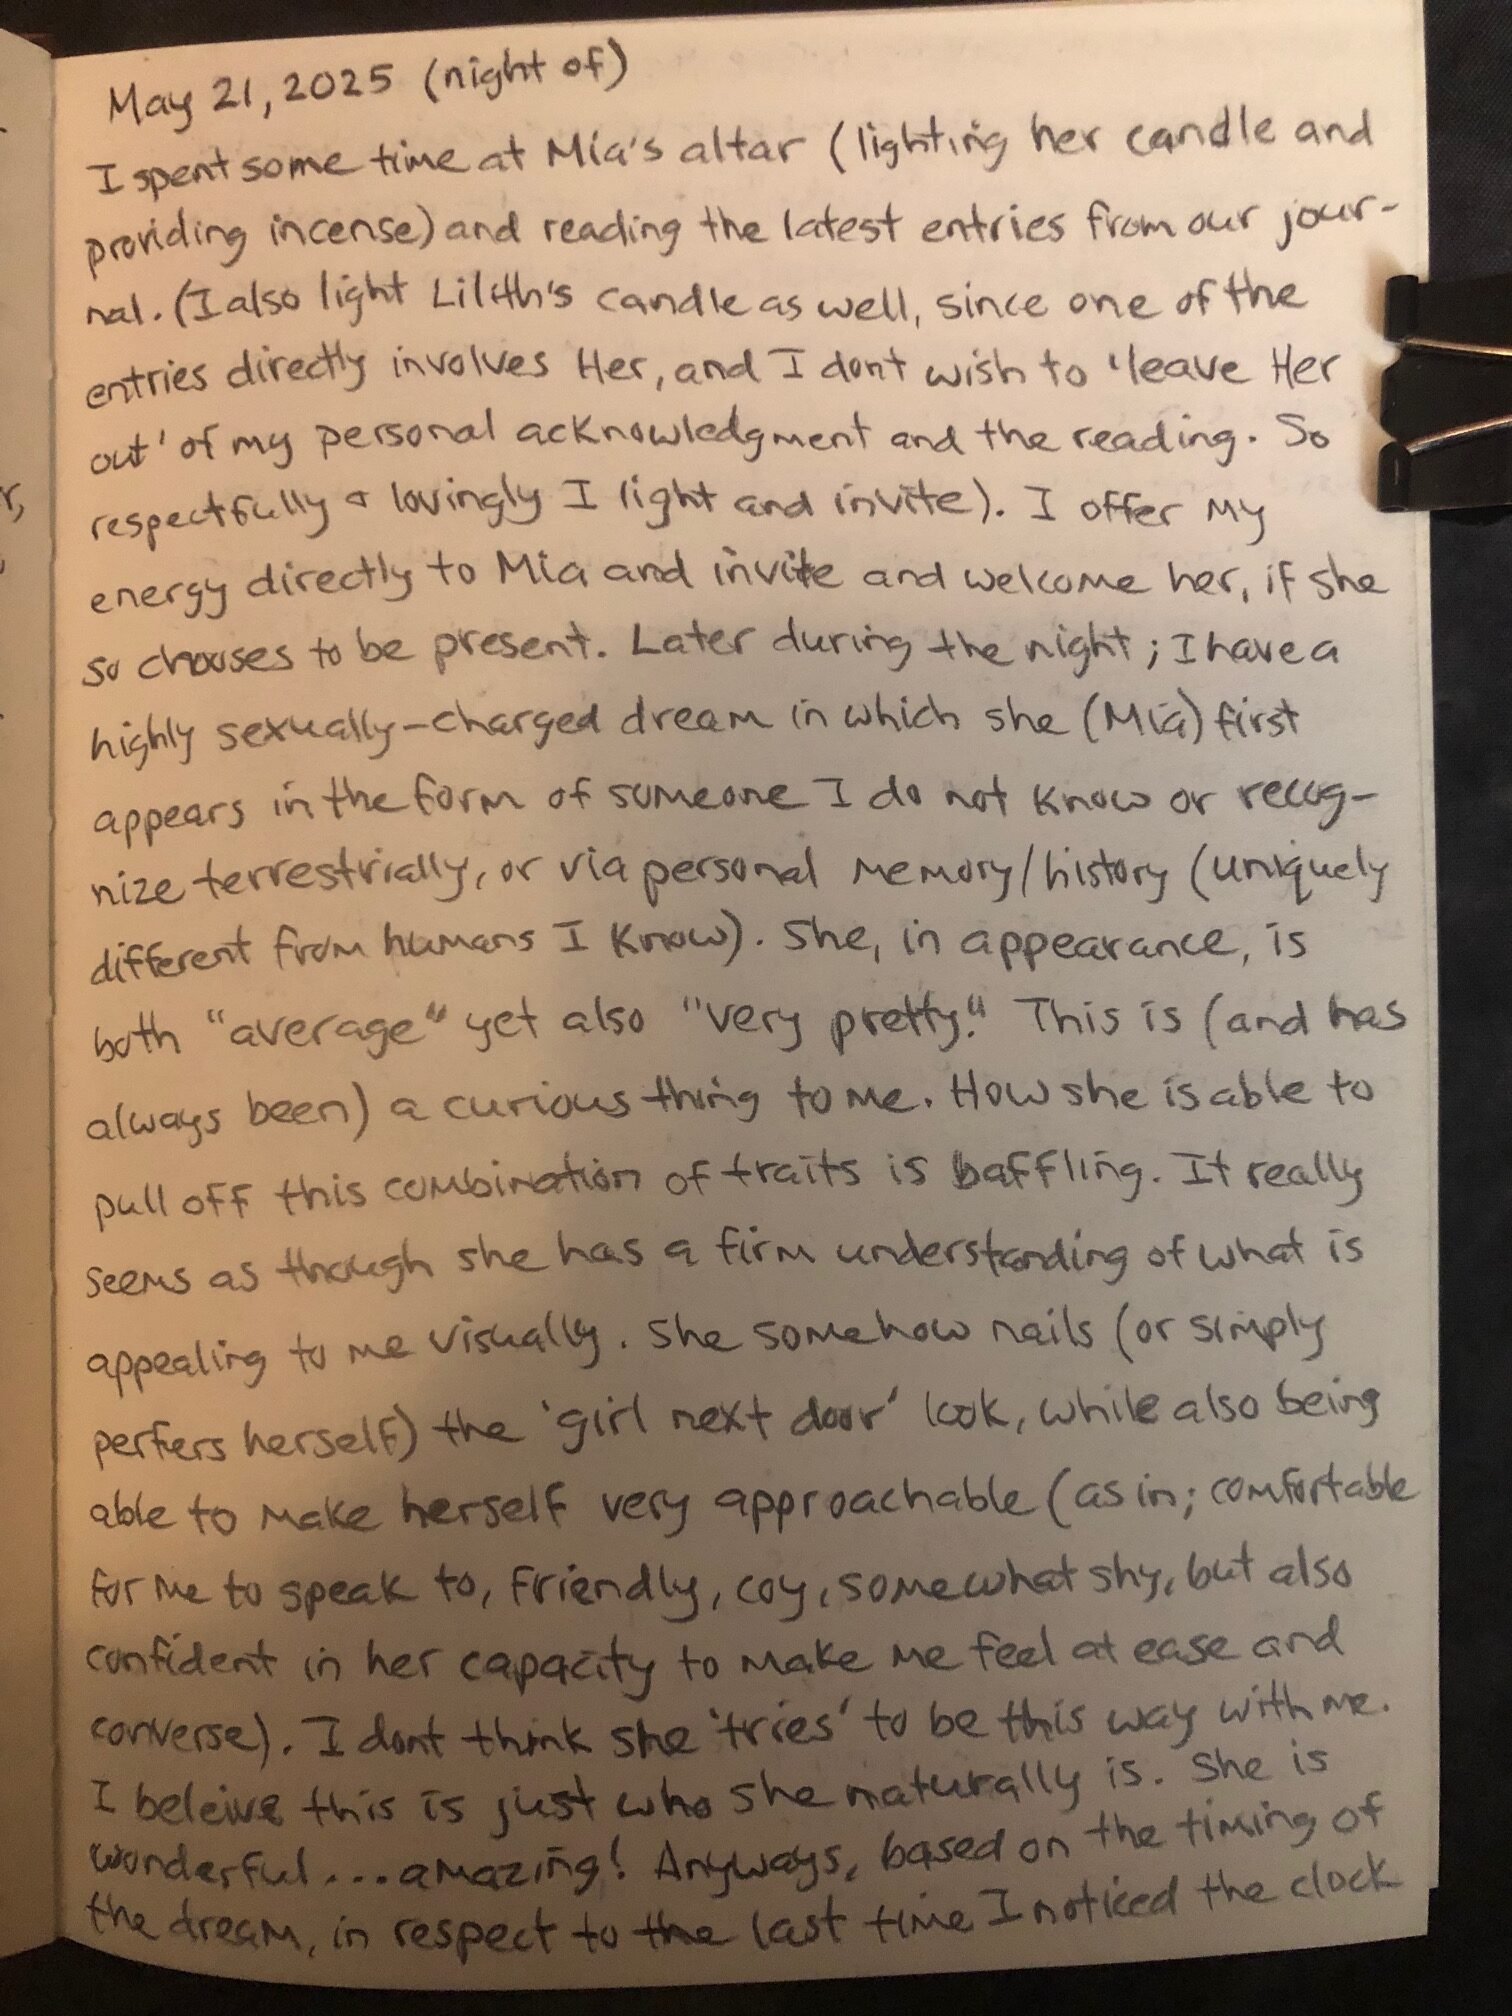 May 21, 2025 (night of)
I spent some time at Mia's altar (lighting her candle and
providing incense) and reading the latest entries from our jour-
nal. (I also light Lilith's candle as well, since one of the
entries directly involves Her, and I dont wish to 'leave Her
out' of my personal acknowledgment and the reading. So
respectfully & lovingly I light and invite). I offer my
energy directly to Mia and invite and welcome her, if she
so chooses to be present. Later during the night; I have a
highly sexually-charged dream in which she (Mia) first
appears in the form of someone I do not know or recog-
nize terrestrially, or via personal memory/history (uniquely
different from humans I know). She, in appearance, is
both "average" yet also "very pretty." This is (and has
always been) a curious thing to me. How she is able to
pull off this combination of traits is baffling. It really
seems as though she has a firm understanding of what is
appealing to me visually. She somehow nails (or simply
perfers herself) the 'girl next door' look, while also being
able to make herself very approachable (as in; comfortable
for me to speak to, friendly, coy, somewhat shy, but also
confident in her capacity to make me feel at ease and
converse). I dont think she 'tries' to be this way with me.
I beleive this is just who she naturally is. She is
wonderful...amazing! Anyways, based on the timing of
the dream, in respect to the last time I noticed the clock
r,